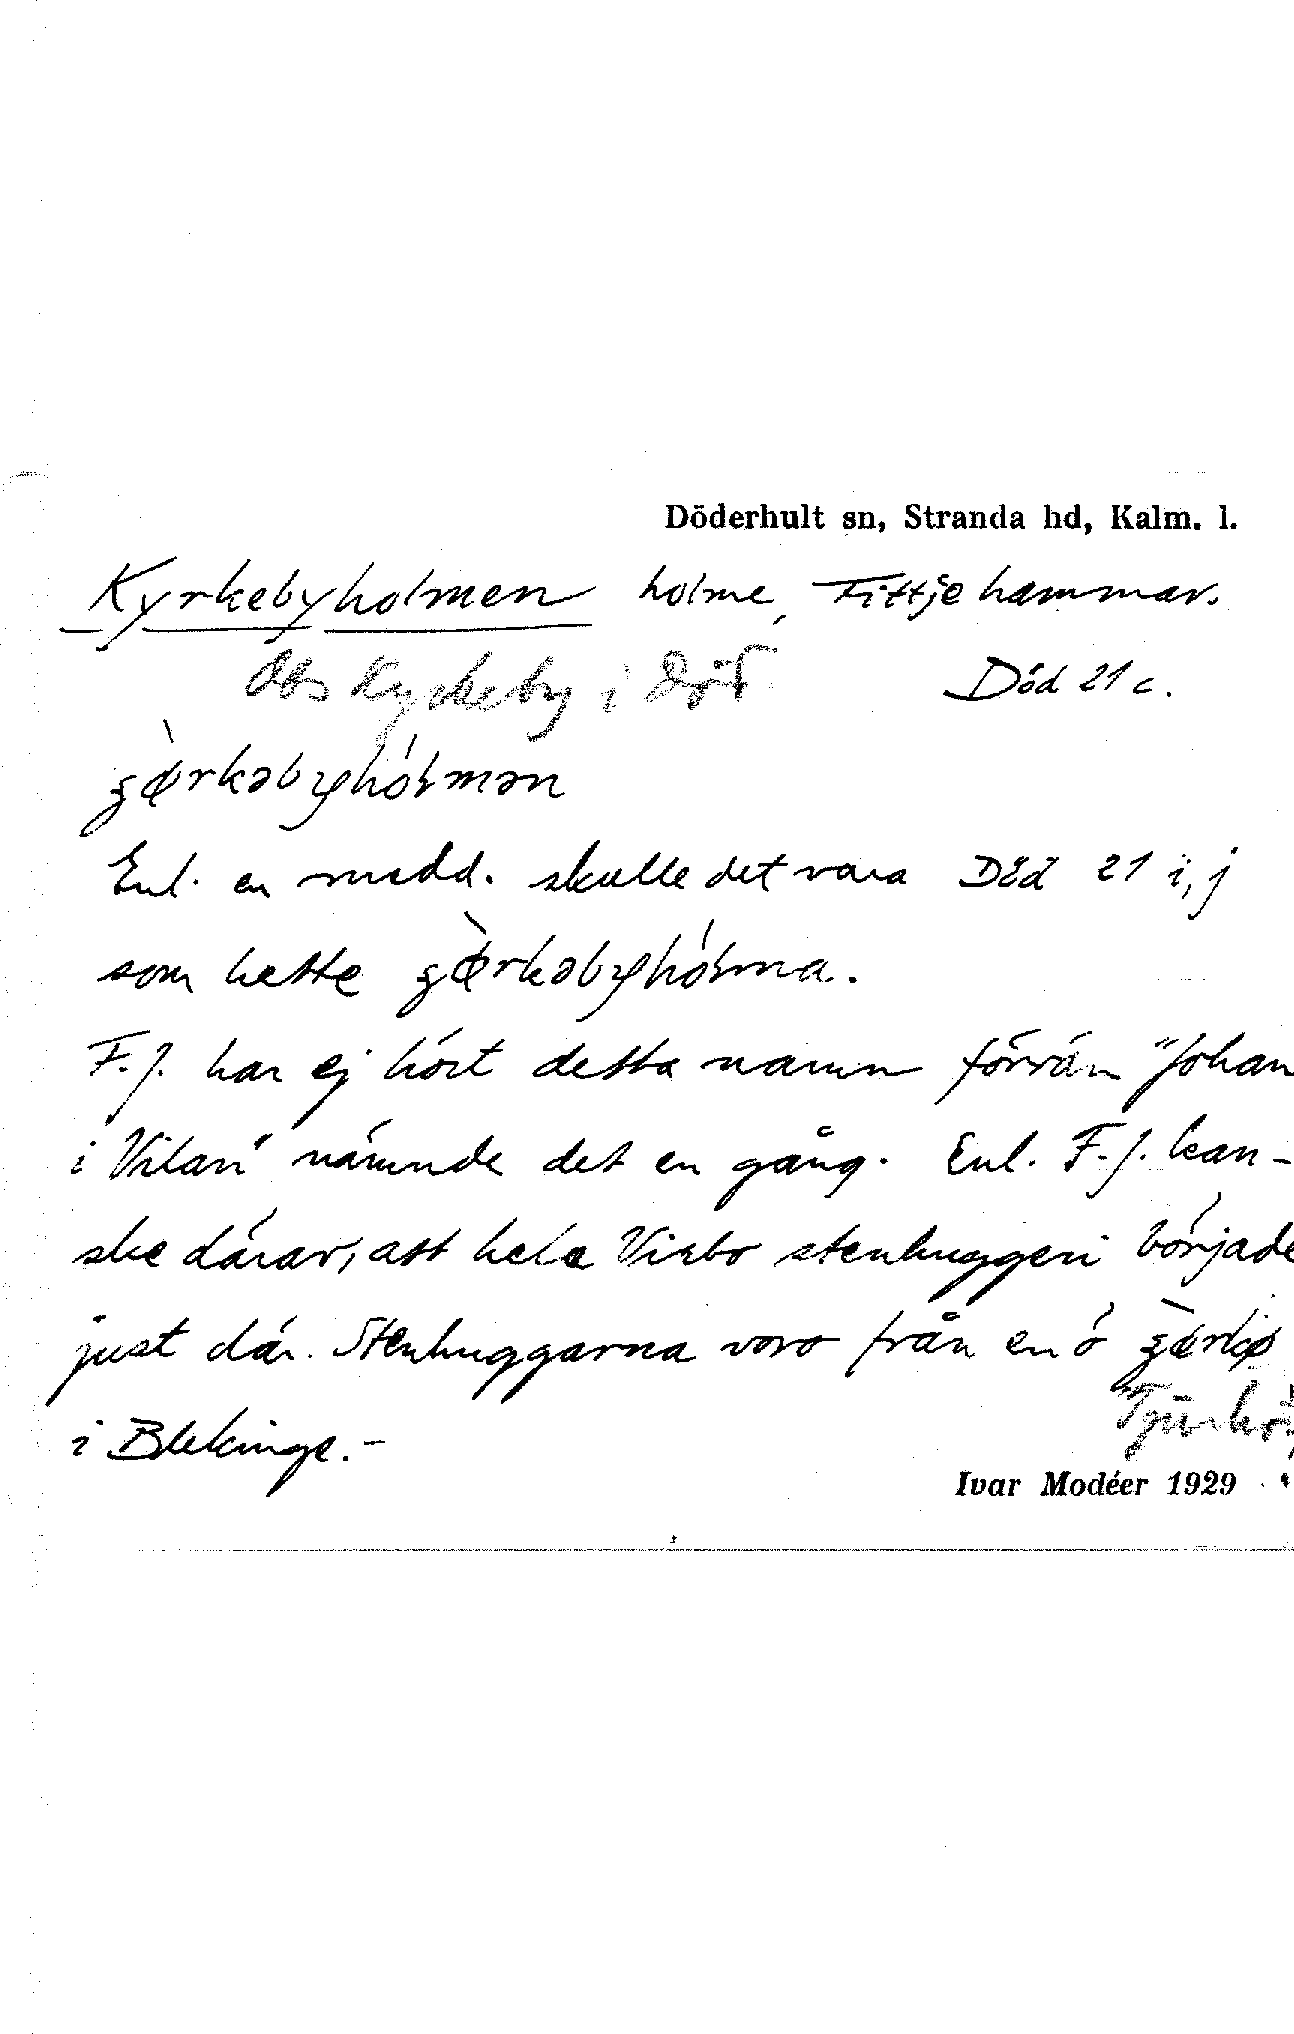 Döderhult sn, Stranda hd, Kalm. l.
Kyrkebyholmen holme, Fittjehammar.
Obs Kyrkeby i Död Död 21 c.
Enl. en medd. skulle det vara Död 21 i, j
som hette
F.J. har ej hört detta namn förrän "Johan
i Vilan" nämnde det en gång. Enl. F.J. kan-
ske därav, att hela Virbo stenhuggeri började
just där. Stenhuggarna voro från en ö
Tjurkö
i Blekinge.-
Ivar Modéer 1929